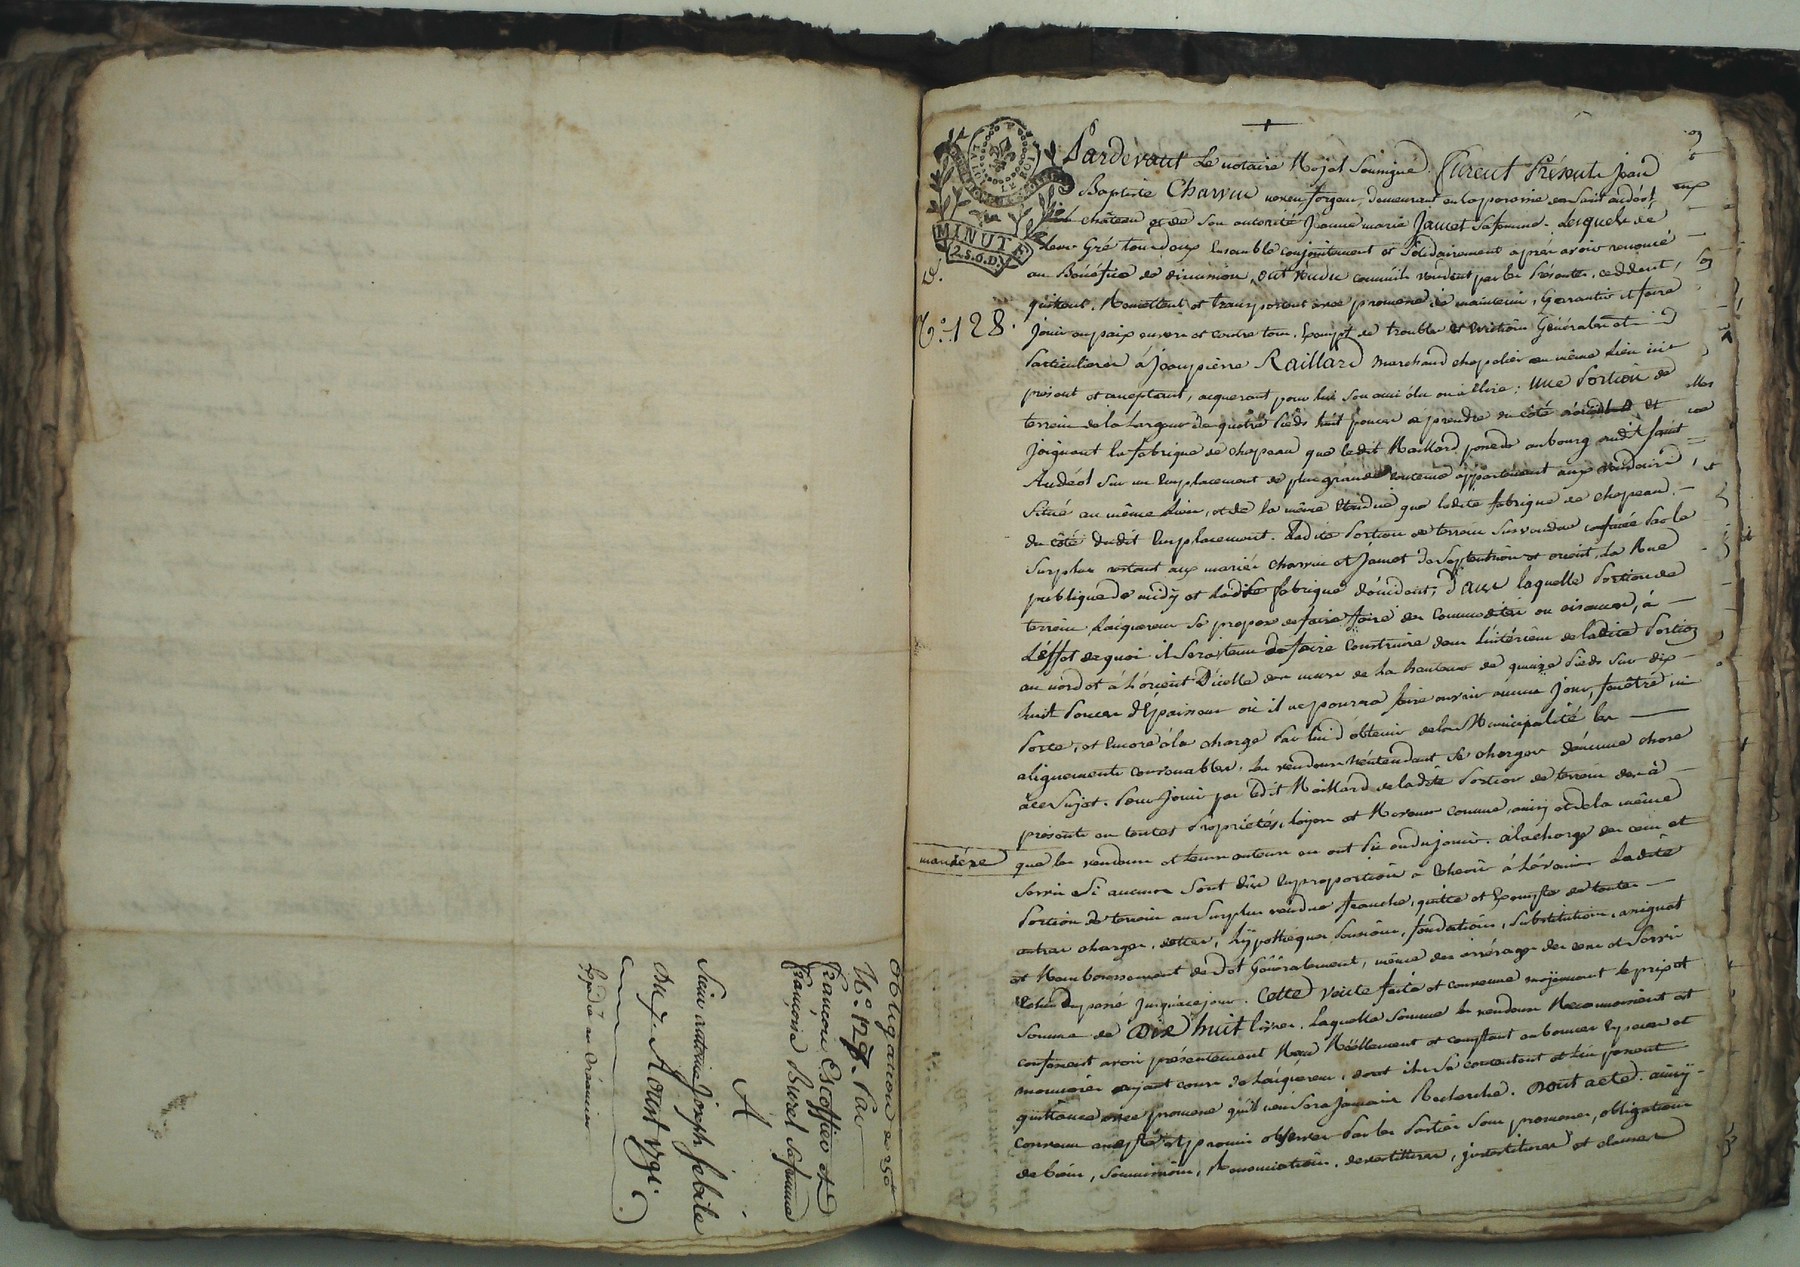 obligation de 250#
N.° 127. Par
françois Escoffier et
françoise Burel sa femme
A
Sieur antoine joseph jobile
du 7. Aoust 1791.
Expédié au créancier
LA LOI ET LE ROI
MINUTE
2.S.6.D.
N.° 128.
Pardevant Le notaire Royal Soussigné. furent Présents Jean
Baptiste Charvin forgeur, demeurant en la paroisse de Saint andéol
château et de Son autorité Jeanne marie Jamet Sa femme. Lesquels de
Leur Gré tous deux Ensemble conjointement et Solidairement après avoir renoncé
au Bénéfice de division, ont vendu comme ils vendent par les Présentes, cèddent,
quittent, Remettent et transportent avec promesse de maintenir, Garrantir et faire
Jouir en paix envers et contre tous. Exempt de troubles et évictions Générales et
Particulieres à Jean pierre Raillard marchand chapelier au même Lieu ici
présent et acceptant, acquerant pour lui Son ami élu ou à Elire : une Portion de
terrein de la Largeur de quatre Pieds huit pouces à prendre du côté d'orient et
Joignant la fabrique de chapeau que ledit Raillard possede au bourg dudit Saint
Andéol Sur un Emplacement de plus grande contenue appartenant aux vendeurs,
Situé au même Lieu, et de la même Etendue que ladite fabrique de chapeau
du côté dudit Emplacement. Ladite Portion de terrein Susvendue confinée Par le
Surplus restant aux mariés Charvin et Jamet de Septentrion et orient, La Rue
publique de midy et Ladite fabrique d'occident; dans laquelle Portion de
terrein L'acquereur Se propose de faire faire des commodités ou aisances, à
L'effet de quoi il Sera tenu de faire Construire dans L'intérieur de ladite Portion
au nord et à L'orient D'icelle des murs de La hauteur de quinze Pieds Sur dix
huit Pouces d'Epaisseur où il ne pourra faire ouvrir aucun Jour, fenêtre ni
Porte, et Encore à la charge Par lui d'obtenir de la Municipalité les
alignements convenables, Les vendeurs n'entendant Se charger d'aucune chose
à ce Sujet. Pour Jouir par ledit Raillard de ladite Portion de terrein dès à
présent en toutes Propriétés, Loyers et Revenus comme ainsi et de la même
maniére
que les vendeurs et Leurs auteurs en ont Pû ou dû jouir. à la charge des cens et
Servis Si aucuns Sont dûs En proportion à Echeoir à L'avenir. Ladite
Portion de terrein au Surplus vendue franche, quitte et Exempte de toutes
autres charges, dettes, hÿpothèques Pensions, fondations, Substitutions, assignat
et Remboursement de Dot Généralement, même des arrérages des cens et Servis
Echus du passé Jusqu'à ce jour. Cette vente faite et convenue moyennant le prix et
Somme de Dix huit livres, Laquelle Somme les vendeurs Reconnoissent et
confessent avoir présentement Reçu Réellement et comptant en bonnes Especes et
monnoies ayant cours de L'acquereur, dont ils Se contentent et L'en passent
quittance avec promesse qu'il n'en Sera Jamais Recherché. Dont acte. ainsy
convenu accepté et promis observer Par les Parties Sous promesses, obligations
de biens, Soumissions, Renonciations, devestitures, investitures et clauses